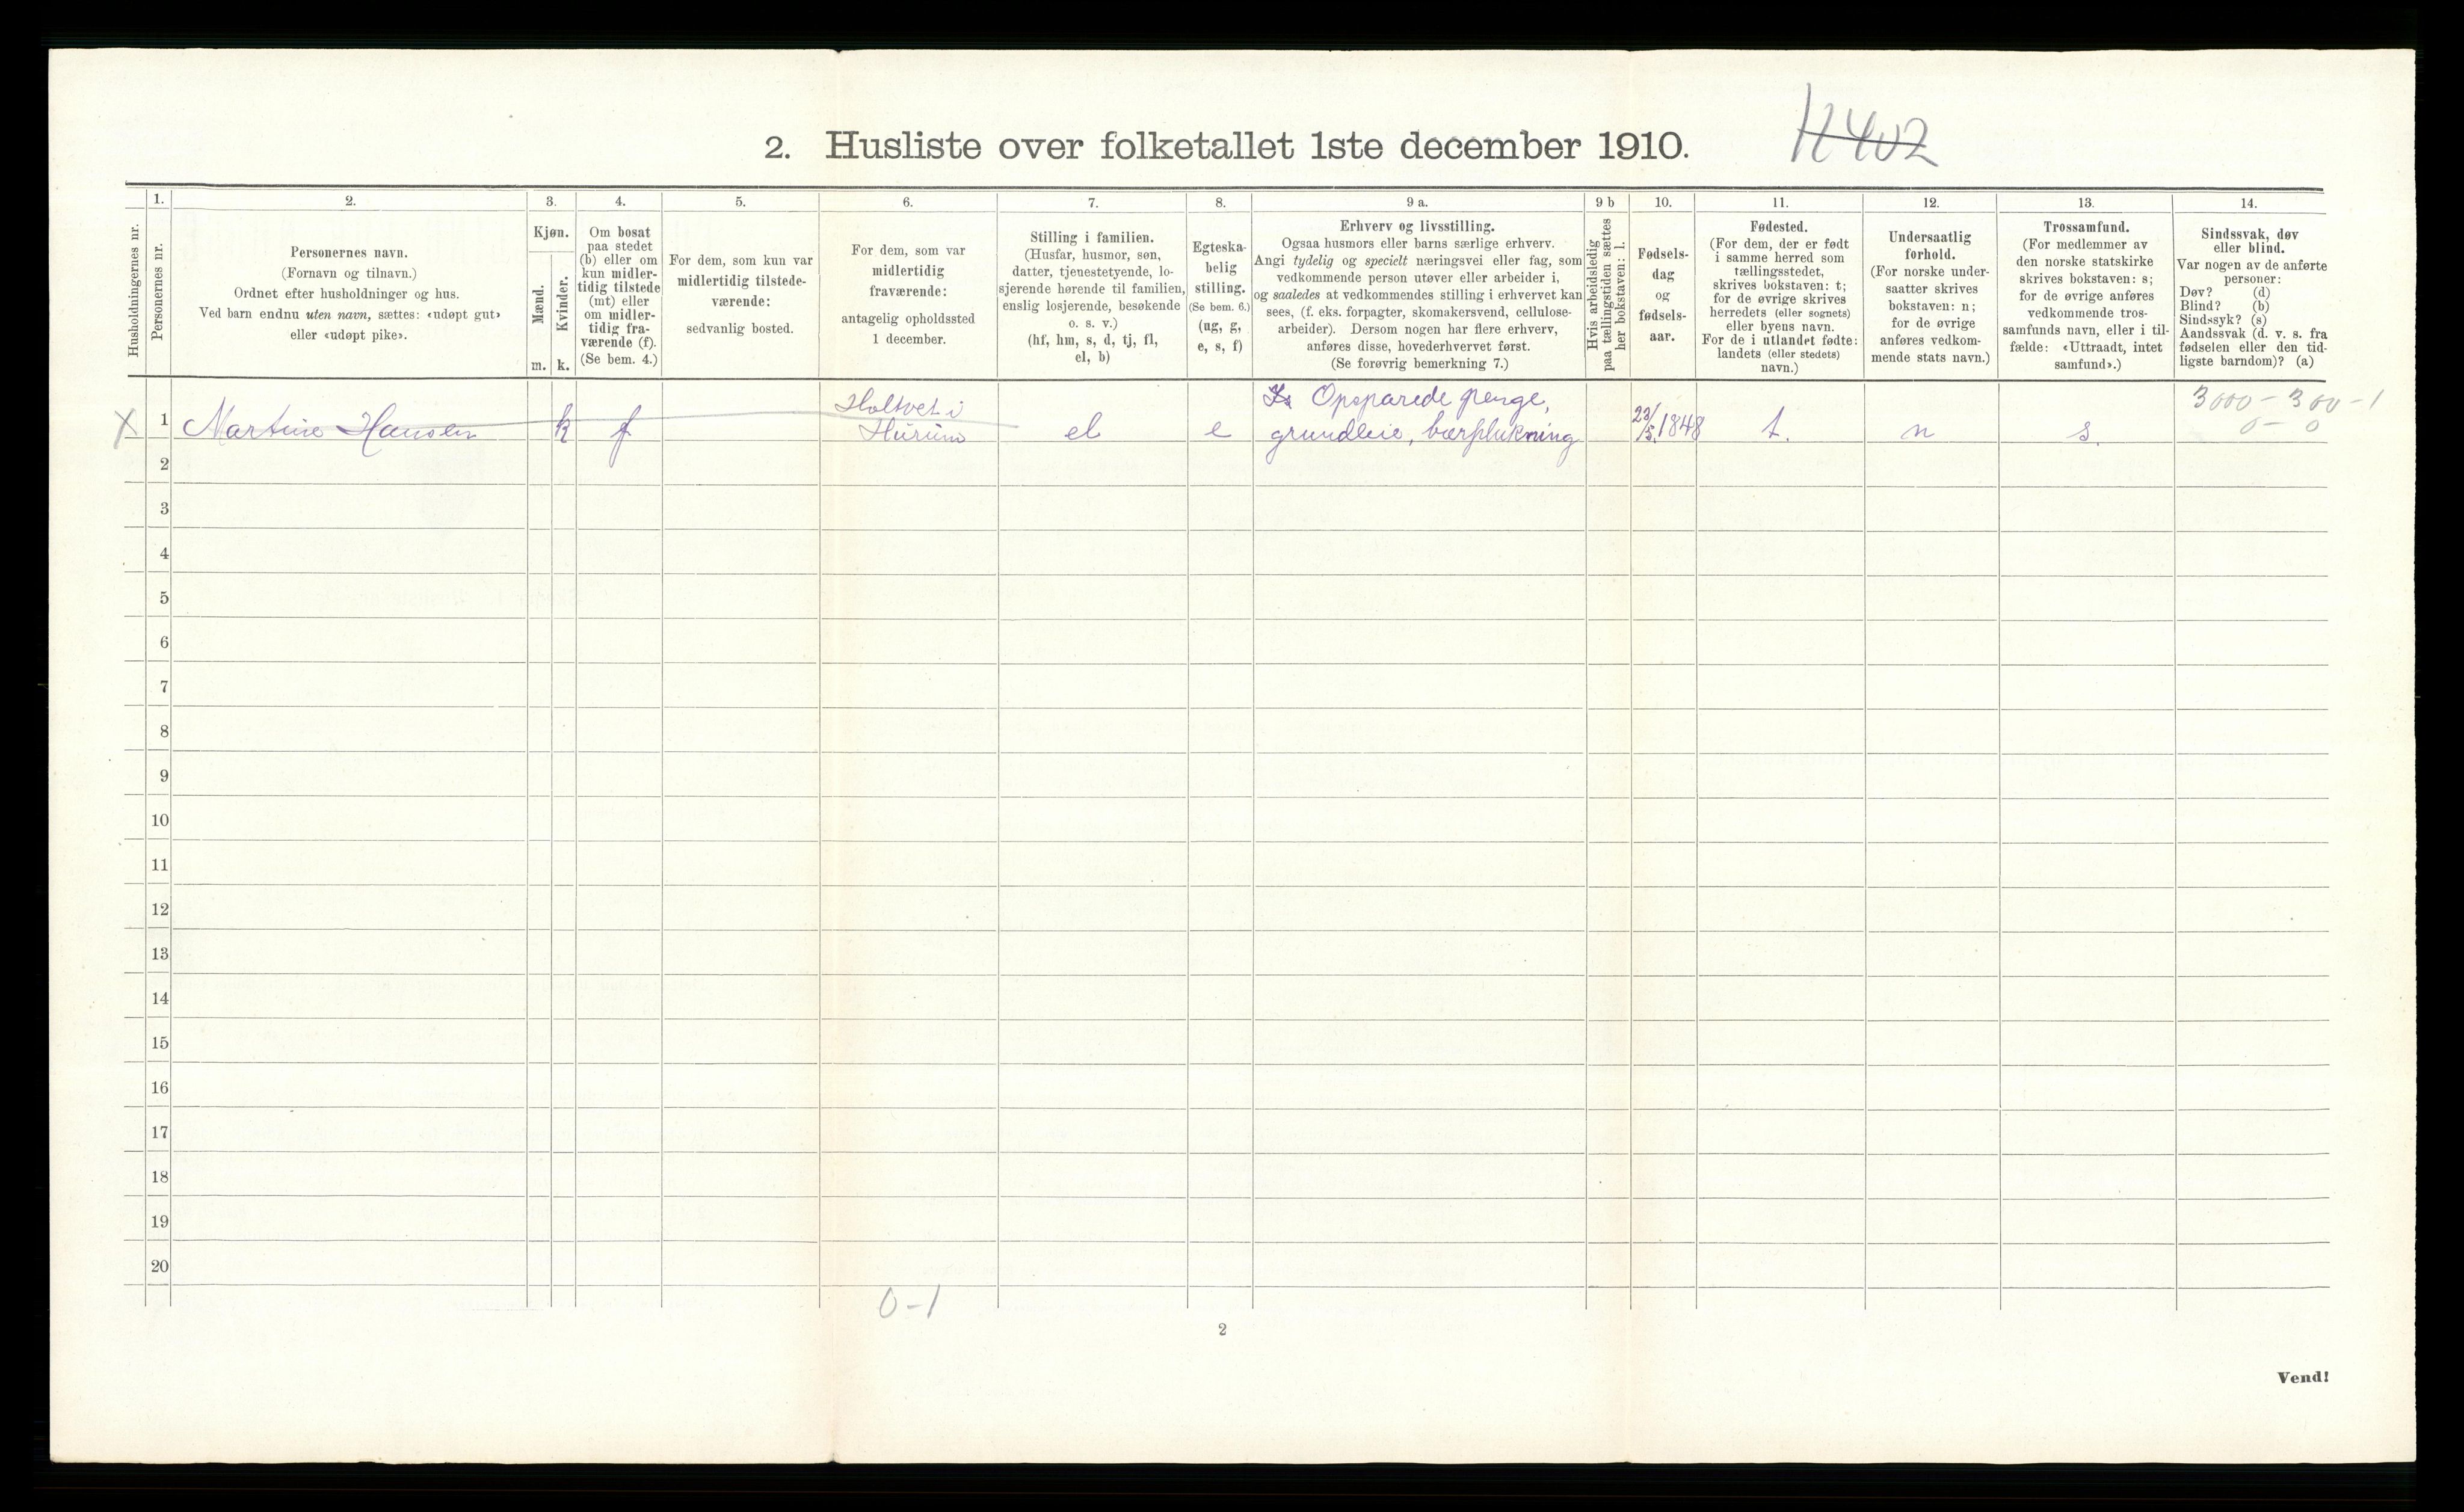 2. Husliste over folketallet 1ste december 1910.
H402
Husholdningernes nr.
1.
Personernes nr.
2.
Personernes navn.
(Fornavn og tilnavn.)
Ordnet efter husholdninger og hus.
Ved barn endnu uten navn, sættes: «udøpt gut»
eller «udøpt pike».
3.
Kjøn.
Mænd.
Kvinder.
m. k.
4.
Om bosat
paa stedet
(b) eller om
kun midler-
tidig tilstede
(mt) eller
om midler-
tidig fra-
værende (f).
(Se bem. 4.)
5.
For dem, som kun var
midlertidig tilstede-
værende:
sedvanlig bosted.
6.
For dem, som var
midlertidig
fraværende:
antagelig opholdssted
1 december.
7.
Stilling i familien.
(Husfar, husmor, søn,
datter, tjenestetyende, lo-
sjerende hørende til familien,
enslig losjerende, besøkende
o. s. v.)
(hf, hm, s, d, tj, fl,
el, b)
8.
Egteska-
belig
stilling.
(Se bem. 6.)
(ug, g,
e, s, f)
9 a.
Erhverv og livsstilling.
Ogsaa husmors eller barns særlige erhverv.
Angi tydelig og specielt næringsvei eller fag, som
vedkommende person utøver eller arbeider i,
og saaledes at vedkommendes stilling i erhvervet kan
sees, (f. eks. forpagter, skomakersvend, cellulose-
arbeider). Dersom nogen har flere erhverv,
anføres disse, hovederhvervet først.
(Se forøvrig bemerkning 7.)
9 b
Hvis arbeidsledig
paa tællingstiden sættes
her bokstaven: l.
10.
Fødsels-
dag
og
fødsels-
aar.
11.
Fødested.
(For dem, der er født
i samme herred som
tællingsstedet,
skrives bokstaven: t;
for de øvrige skrives
herredets (eller sognets)
eller byens navn.
For de i utlandet fødte:
landets (eller stedets)
navn.)
12.
Undersaatlig
forhold.
(For norske under-
saatter skrives
bokstaven: n;
for de øvrige
anføres vedkom-
mende stats navn.)
13.
Trossamfund.
(For medlemmer av
den norske statskirke
skrives bokstaven: s;
for de øvrige anføres
vedkommende tros-
samfunds navn, eller i til-
fælde: «Uttraadt, intet
samfund».)
14.
Sindssvak, døv
eller blind.
Var nogen av de anførte
personer:
Døv? (d)
Blind? (b)
Sindssyk? (s)
Aandssvak (d. v. s. fra
fødselen eller den tid-
ligste barndom)? (a)
Holtvet i
Opsparede penge,
3000 - 300 - 1
X 1 Martine Hansen k f Hurum el e grundleie, bærplukning 23/5 1848 t. n s. 0 - 0
2
3
4
5
6
7
8
9
10
11
12
13
14
15
16
17
18
19
20
0-1
2
Vend!